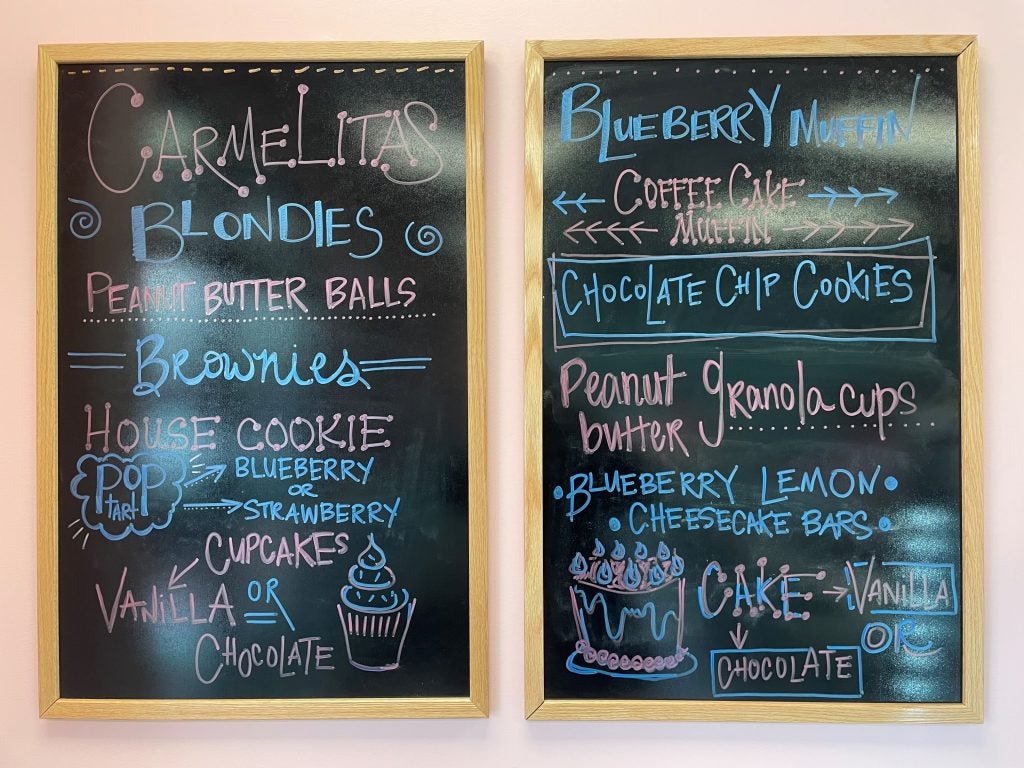 CARMELITAS
BLONDIES
PEANUT BUTTER BALLS
Brownies
HOUSE COOKIE
POP
TART
BLUEBERRY
OR
STRAWBERRY
CUPCAKES
VANiLLA OR
CHOCOLATE
BLUEBERRY MUFFIN
COFFEE CAKE
MUFFIN
CHOCOLATE CHIP COOKIES
Peanut granola cups
butter
BLUEBERRY LEMON
CHEESECAKE BARS
CAKE VANILLA
OR
CHOCOLATE